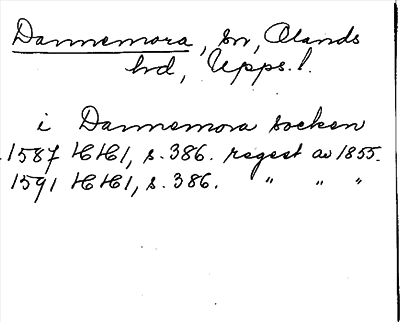 Dannemora, sn, Olands
hd, Upps.l.
i Dannemora socken
1587 HH1, s.386. regest av 1855.
1591 HH1, s.386. " " "